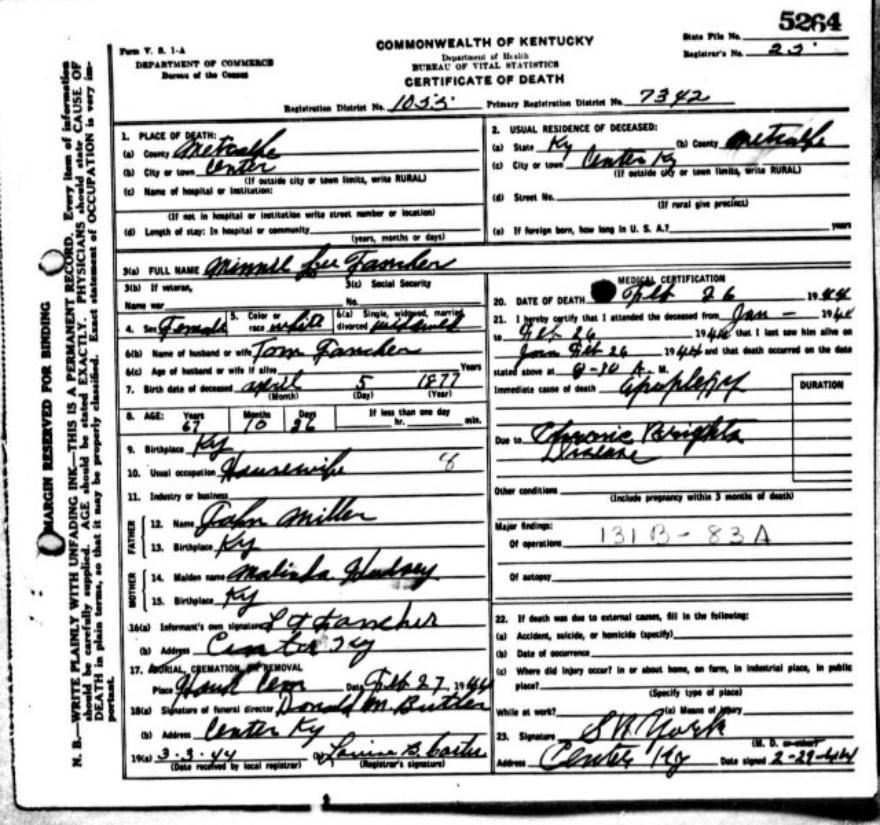 5264
Form V. S. 1-A
DEPARTMENT OF COMMERCE
Bureau of the Census
COMMONWEALTH OF KENTUCKY
Department of Health
BUREAU OF VITAL STATISTICS
CERTIFICATE OF DEATH
State File No.
Registrar's No. 25
Registration District No. 1055 Primary Registration District No. 7342
MARGIN RESERVED FOR BINDING
N. B.—WRITE PLAINLY WITH UNFADING INK—THIS IS A PERMANENT RECORD. Every item of information
should be carefully supplied. AGE should be stated EXACTLY. PHYSICIANS should state CAUSE OF
DEATH in plain terms, so that it may be properly classified. Exact statement of OCCUPATION is very im-
portant.
1. PLACE OF DEATH:
(a) County Metcalfe
(b) City or town Center
(If outside city or town limits, write RURAL)
(c) Name of hospital or institution:
(If not in hospital or institution write street number or location)
(d) Length of stay: In hospital or community
(years, months or days)
2. USUAL RESIDENCE OF DECEASED:
(a) State Ky (b) County Metcalfe
(c) City or town Center Ky
(If outside city or town limits, write RURAL)
(d) Street No.
(If rural give precinct)
(e) If foreign born, how long in U. S. A.? years
3(a) FULL NAME Minnie Lee Fancher
3(b) If veteran,
Name war
3(c) Social Security
No.
4. Sex Female 5. Color or race white 6(a) Single, widowed, married, divorced widowed
6(b) Name of husband or wife Tom Fancher
6(c) Age of husband or wife if alive Years
7. Birth date of deceased april 5 1877
(Month) (Day) (Year)
8. AGE: Years Months Days If less than one day
67 10 26 hr. min.
9. Birthplace Ky
10. Usual occupation Housewife
11. Industry or business
FATHER
12. Name John Miller
13. Birthplace Ky
MOTHER
14. Maiden name Malinda
15. Birthplace Ky
16(a) Informant's own signature L T Fancher
(b) Address Center Ky
17. BURIAL, CREMATION, OR REMOVAL
Place Cem Date Feb 27, 1944
18(a) Signature of funeral director Donald M. Butler
(b) Address Center Ky
19(a) 3-3-44 (b) Louise B. Carter
(Date received by local registrar) (Registrar's signature)
MEDICAL CERTIFICATION
20. DATE OF DEATH Feb 26 1944
21. I hereby certify that I attended the deceased from Jan — 1944
to Feb 26 1944, that I last saw him alive on
Jan Feb 26 1944 and that death occurred on the date
stated above at 8-30 A. M.
Immediate cause of death Apoplexy
DURATION
Due to Chronic Brights
Disease
Other conditions
(Include pregnancy within 3 months of death)
Major findings:
Of operations 131 B - 83 A
Of autopsy
22. If death was due to external causes, fill in the following:
(a) Accident, suicide, or homicide (specify)
(b) Date of occurrence
(c) Where did injury occur? In or about home, on farm, in industrial place, in public
place?
(Specify type of place)
While at work? (e) Means of injury
23. Signature S N York
(M. D. or other)
Address Center Ky Date signed 2-29-44